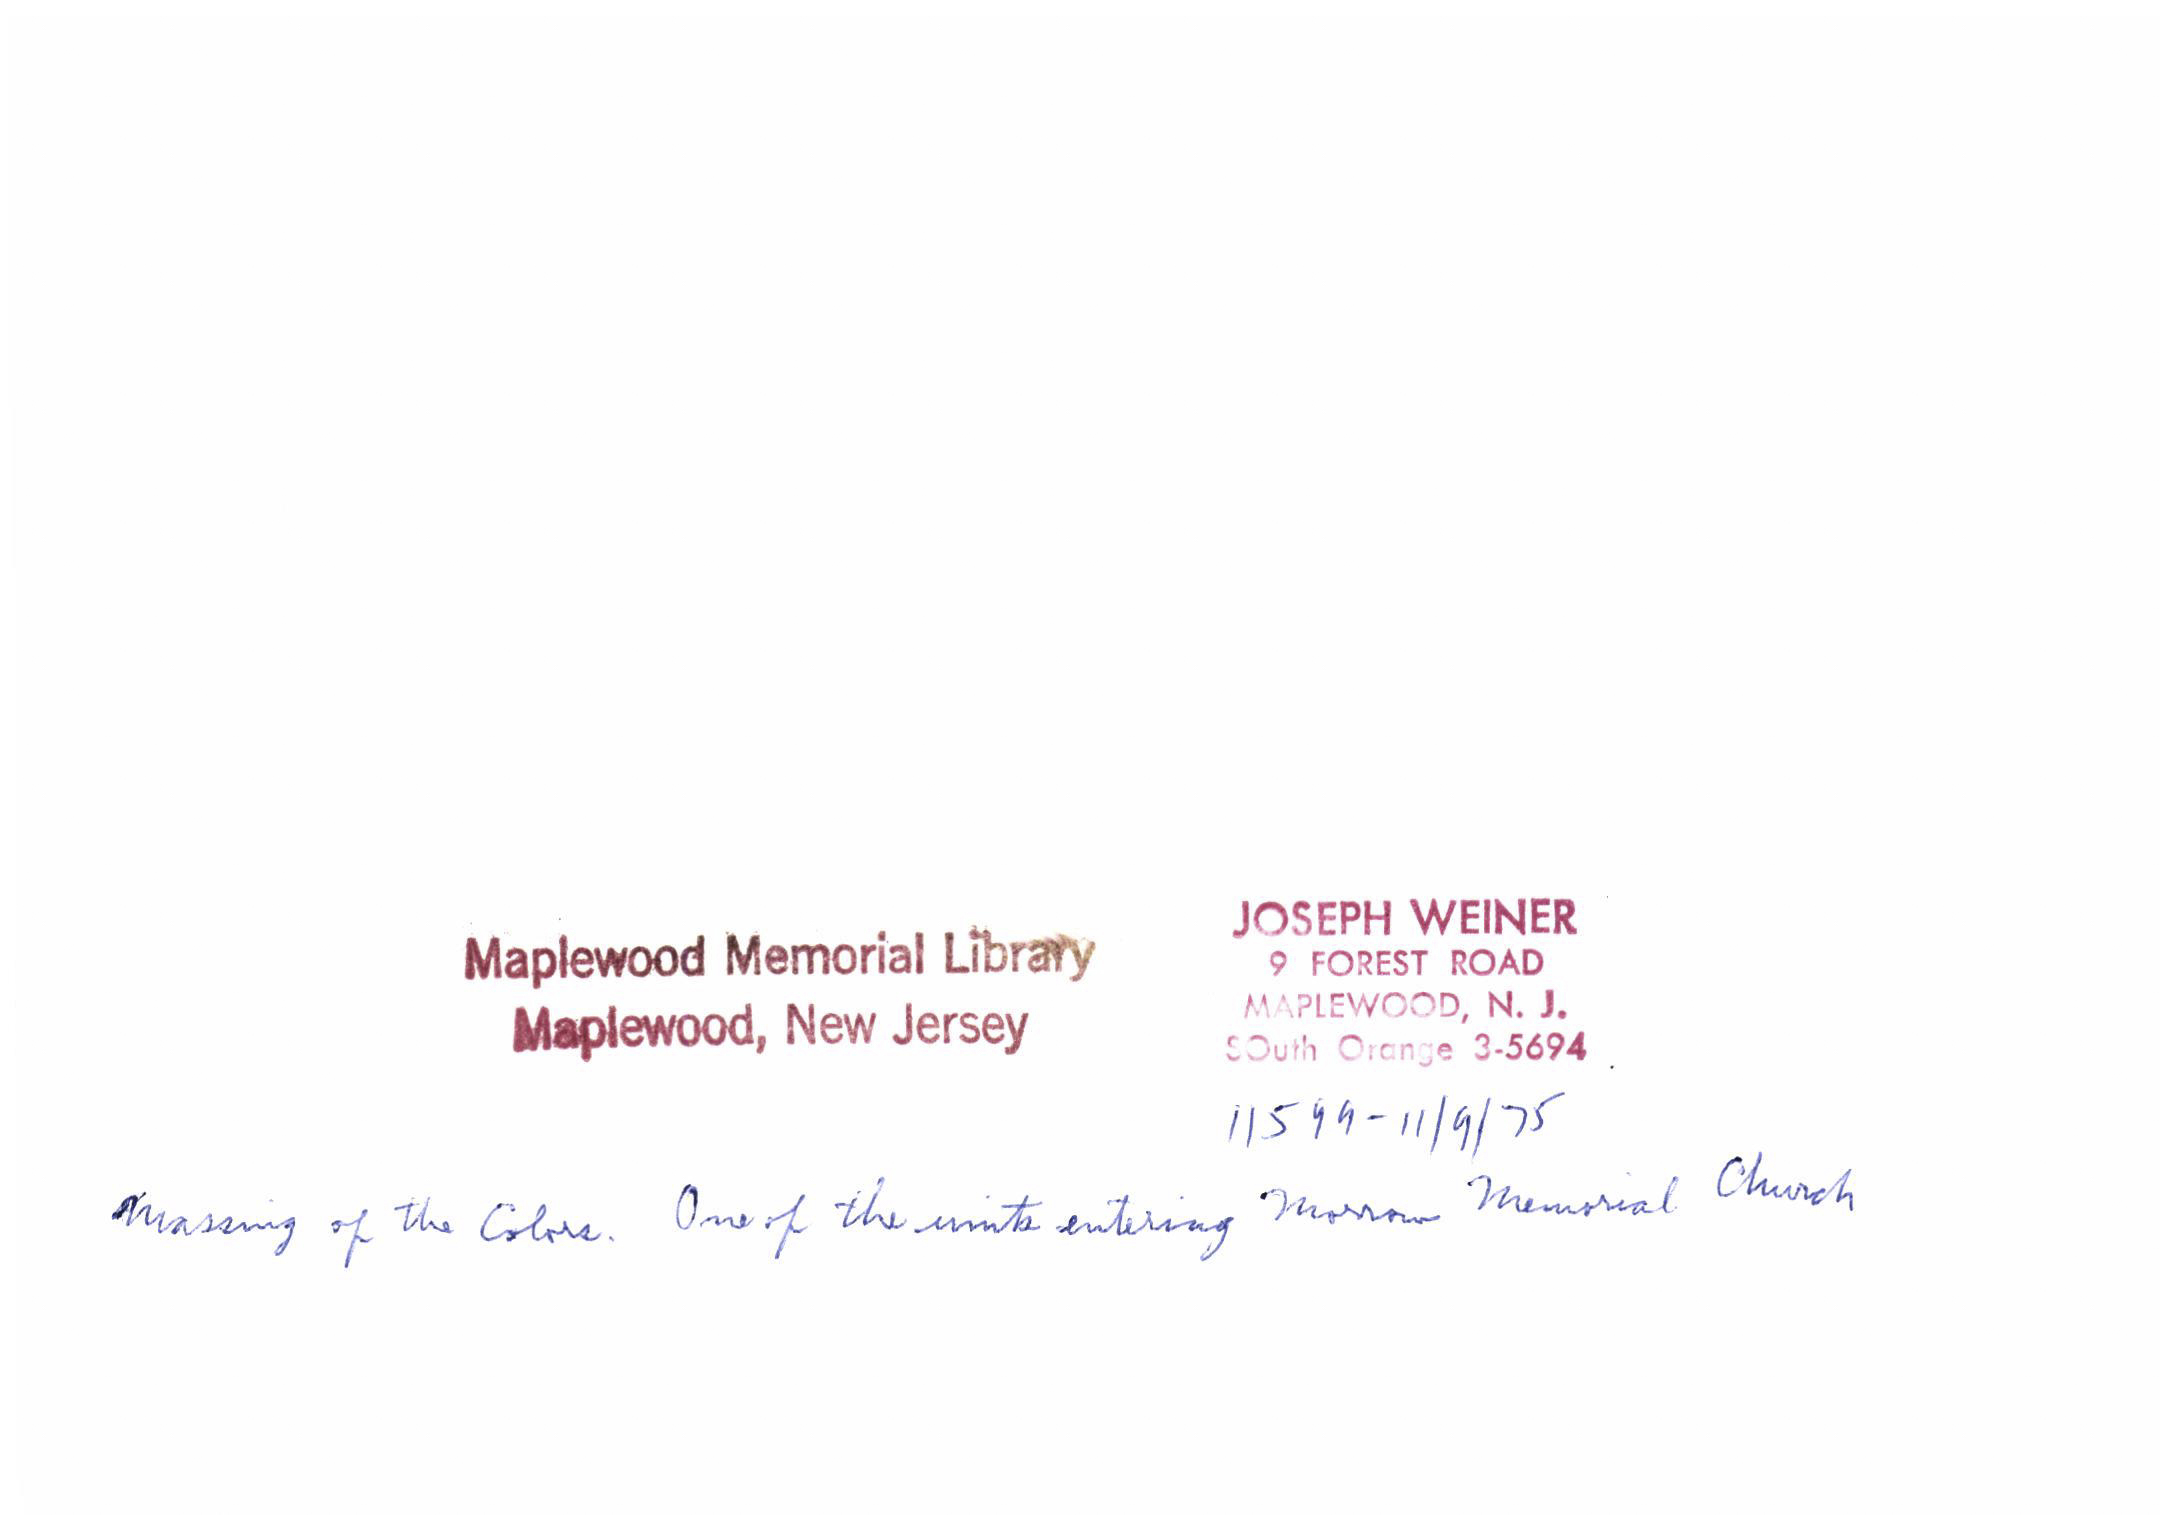 Maplewood Memorial Library
Maplewood, New Jersey
JOSEPH WEINER
9 FOREST ROAD
MAPLEWOOD, N. J.
SOuth Orange 3-5694
11599-11/9/75
Massing of the Colors. One of the units entering Morrow Memorial Church